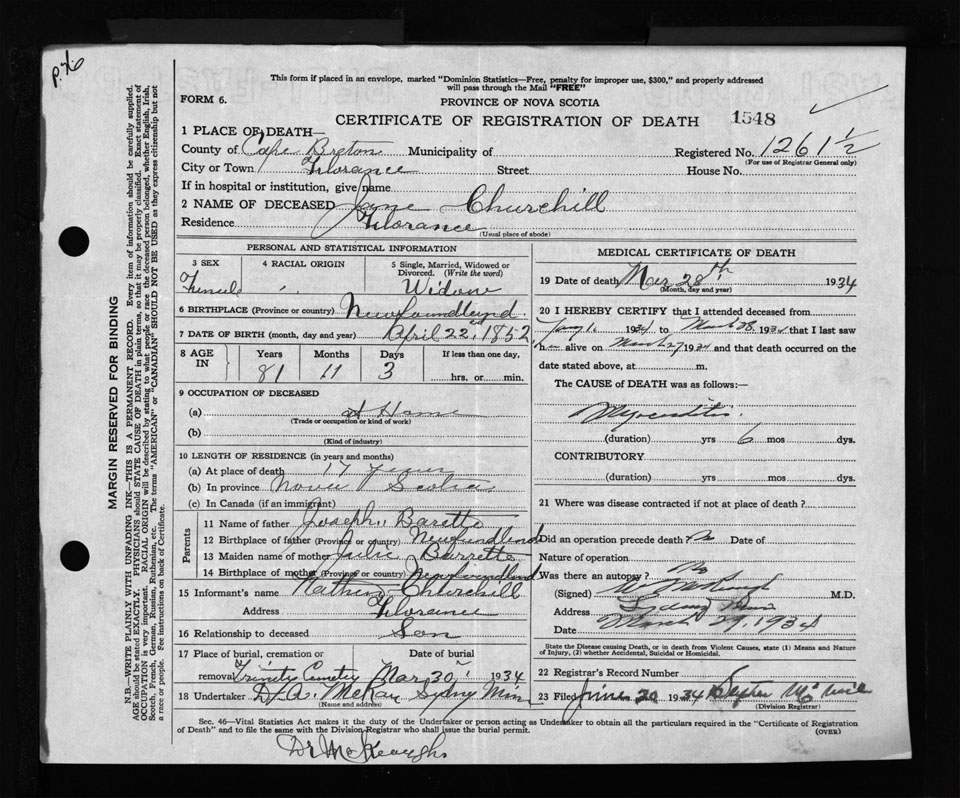 p. 76
This form if placed in an envelope, marked "Dominion Statistics—Free, penalty for improper use, $300," and properly addressed
will pass through the Mail "FREE"
FORM 6. PROVINCE OF NOVA SCOTIA
CERTIFICATE OF REGISTRATION OF DEATH 1548
1 PLACE OF DEATH—
County of Cape Breton Municipality of Registered No. 1261½
(For use of Registrar General only)
City or Town Florance Street House No.
If in hospital or institution, give name
2 NAME OF DECEASED Jane Churchill
Residence Florance
(Usual place of abode)
PERSONAL AND STATISTICAL INFORMATION
3 SEX 4 RACIAL ORIGIN 5 Single, Married, Widowed or
Divorced. (Write the word)
Female Widow
6 BIRTHPLACE (Province or country) Newfoundland
7 DATE OF BIRTH (month, day and year) April 22, 1852
8 AGE IN Years Months Days If less than one day,
81 11 3 hrs. or min.
9 OCCUPATION OF DECEASED
(a) at Home
(Trade or occupation or kind of work)
(b)
(Kind of industry)
10 LENGTH OF RESIDENCE (in years and months)
(a) At place of death 17 years
(b) In province Nova Scotia
(c) In Canada (if an immigrant)
Parents
11 Name of father Joseph Barette
12 Birthplace of father (Province or country) Newfundlind
13 Maiden name of mother Julie Barrette
14 Birthplace of mother (Province or country) Newfoundlund
15 Informant's name Churchill
Address Florance
16 Relationship to deceased Son
17 Place of burial, cremation or Date of burial
removal Trinity Cemetry Mar 30 1934
18 Undertaker D. A. McKay Sydney Mines
(Name and address)
MEDICAL CERTIFICATE OF DEATH
19 Date of death Mar 28th 1934
(Month, day and year)
20 I HEREBY CERTIFY that I attended deceased from
1934 to March 28, 1934 that I last saw
her alive on March 27 1934 and that death occurred on the
date stated above, at m.
The CAUSE of DEATH was as follows:—
Myocarditis.
(duration) yrs 6 mos dys.
CONTRIBUTORY
(duration) yrs mos dys.
21 Where was disease contracted if not at place of death?
Did an operation precede death? No Date of
Nature of operation
Was there an autopsy? No
(Signed) McKeough M.D.
Address Sydney Mines
Date March 29, 1934
State the Disease causing Death, or in death from Violent Causes, state (1) Means and Nature
of Injury, (2) whether Accidental, Suicidal or Homicidal.
22 Registrar's Record Number
23 Filed June 20 1934 McNeil
(Division Registrar)
Sec. 46—Vital Statistics Act makes it the duty of the Undertaker or person acting as Undertaker to obtain all the particulars required in the "Certificate of Registration
of Death" and to file the same with the Division Registrar who shall issue the burial permit. (OVER)
Dr McKeough
MARGIN RESERVED FOR BINDING
N.B.—WRITE PLAINLY WITH UNFADING INK—THIS IS A PERMANENT RECORD. Every item of information should be carefully supplied.
AGE should be stated EXACTLY. PHYSICIANS should STATE CAUSE OF DEATH in plain terms, so that it may be properly classified. Exact statement of
OCCUPATION is very important. RACIAL ORIGIN will be described by stating to what people or race the deceased person belonged, whether English, Irish,
Scotch, French, German, Russian, Ruthenian, etc. The terms "AMERICAN" or "CANADIAN" SHOULD NOT BE USED as they express citizenship but not
a race or people. See instructions on back of Certificate.